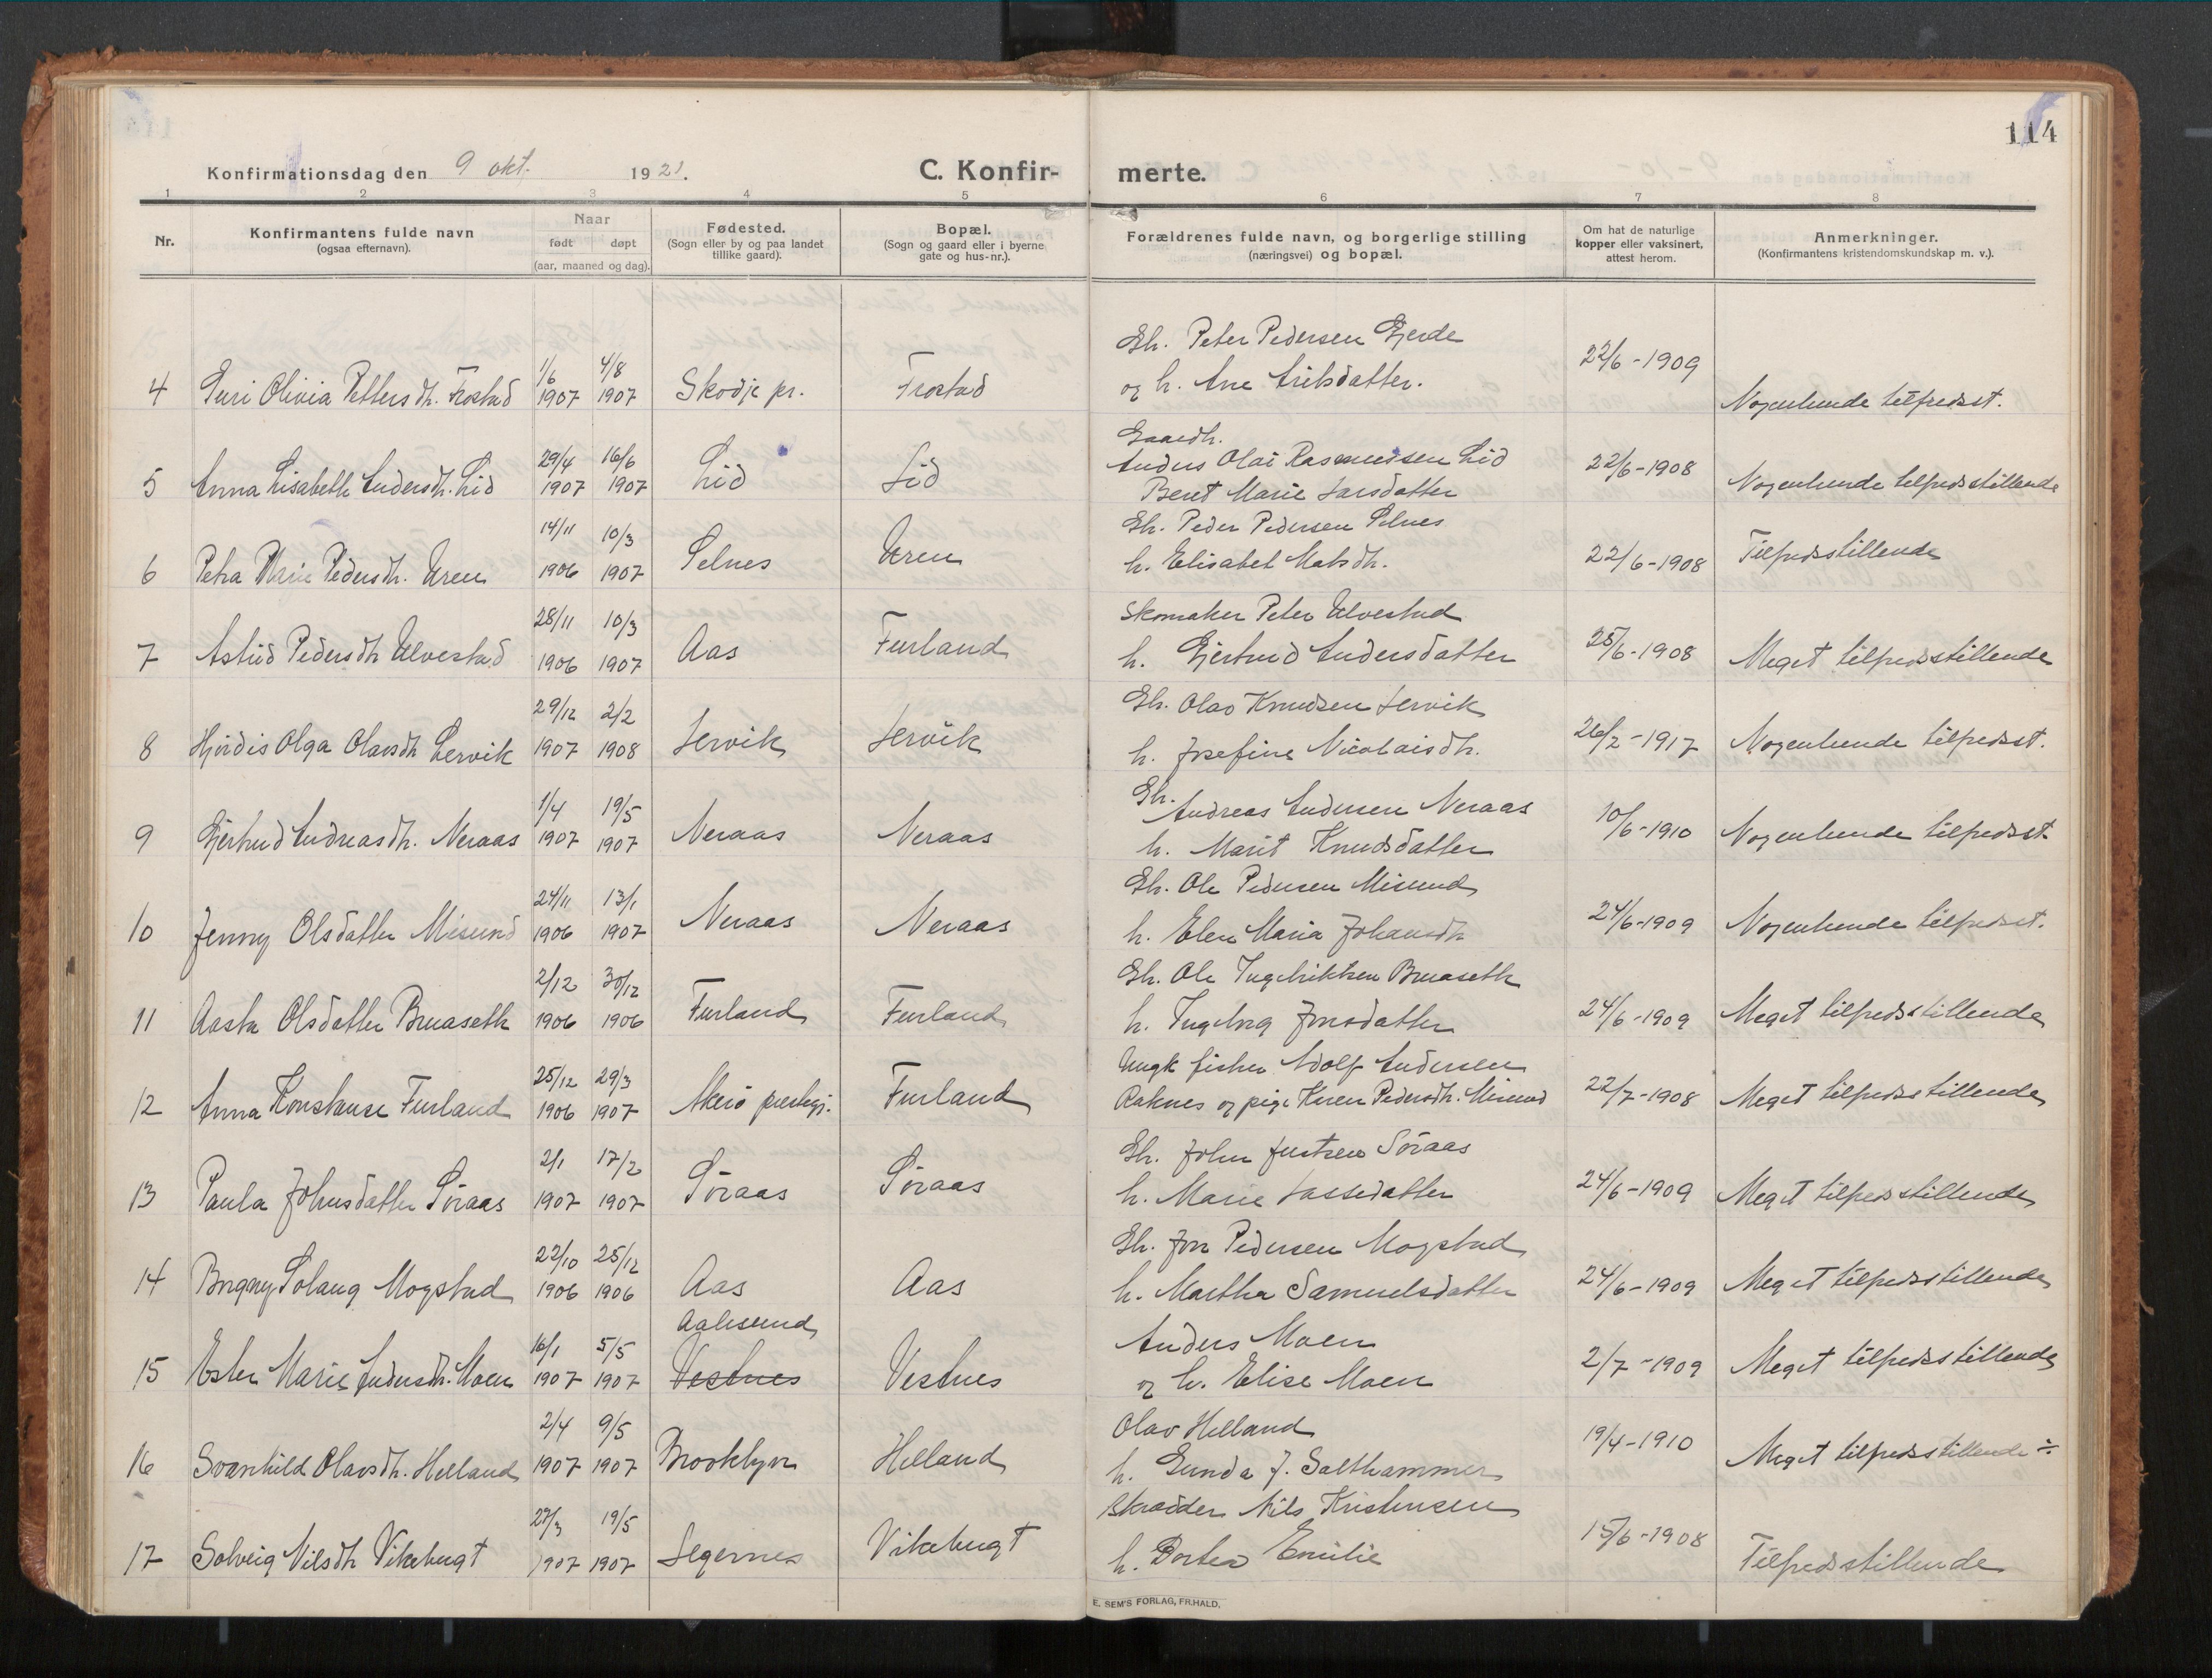 114
Konfirmationsdag den 9 okt. 1921. C. Konfirmerte.
1 2 3 4 5 6 7 8
Nr. Konfirmantens fulde navn (ogsaa efternavn). Naar født døpt (aar, maaned og dag). Fødested. (Sogn eller by og paa landet tillike gaard). Bopæl. (Sogn og gaard eller i byerne gate og hus-nr.). Forældrenes fulde navn, og borgerlige stilling (næringsvei) og bopæl. Om hat de naturlige kopper eller vaksinert, attest herom. Anmerkninger. (Konfirmantens kristendomskundskap m. v.).
Gh. Peter Pedersen Gjerde
4 Guri Olivia Petters dh. Frostad 1/6 1907 4/8 1907 Skodje pr. Frostad og h. Ane Eriksdatter. 22/6-1909 Nogenlunde tilfredsst.
Gaardb.
5 Anna Lisabeth Andersdh. Lid 29/4 1907 16/6 1907 Lid Lid Anders Olai Rasmussen Lid 22/6-1908 Nogenlunde tilfredsstillende
Beret Marie Larsdatter
Gh. Peder Pedersen Selnes
6 Petra Marie Pedersdh. Uren 14/11 1906 10/3 1907 Selnes Uren h. Elisabet Matsdh. 22/6-1908 Tilfredsstillende
Skomaker Peter Ulvestad
7 Astrid Pedersdh Ulvestad 28/11 1906 10/3 1907 Aas Furland h. Gjertrud Andersdatter 25/6-1908 Meget tilfredsstillende
Gh. Olav Knudsen Lervik
8 Hjördis Olga Olavsdh Lervik 29/12 1907 2/2 1908 Lervik Lervik h. Josefine Nicolaisdh. 26/2-1917 Nogenlunde tilfredsst.
Gh. Andreas Andersen Neraas
9 Gjertrud Andreasdh. Neraas 1/4 1907 19/5 1907 Neraas Neraas h. Marit Knudsdatter 10/6-1910 Nogenlunde tilfredsst
Gh. Ole Pedersen Misund
10 Jenny Olsdatter Misund 24/11 1906 13/1 1907 Neraas Neraas h. Elen Maria Johansdh 24/6-1909 Nogenlunde tilfredsst.
Gh. Ole Ingebriktsen Bruaseth
11 Aasta Olsdatter Bruaseth 2/12 1906 30/12 1906 Furland Furland h. Ingeborg Jonsdatter 24/6-1909 Meget tilfredsstillende
Ungk fisker Adolf Andersen
12 Anna Konstanse Furland 25/12 1906 29/3 1907 Akerö prestegj. Furland Raknes og pige Karen Pedersdh. Misund 22/7-1908 Meget tilfredsstillende
Gh. John Justsen Söraas
13 Paula Johnsdatter Söraas 2/1 1907 17/2 1907 Söraas Söraas h. Marie Lassedatter 24/6-1909 Meget tilfredsstillende
Gh. Jon Pedersen Mogstad
14 Borgny Solaug Mogstad 22/10 1906 25/12 1906 Aas Aas h. Martha Samuelsdatter 24/6-1909 Meget tilfredsstillende
Aalesund Anders Moen
15 Ester Marie Andersdh. Moen 16/1 1907 5/5 1907 Vestnes Vestnes og h. Elise Moen 2/7-1909 Meget tilfredsstillende
Olav Helland
16 Svanhild Olavsdh. Helland 2/4 1907 9/5 1907 Brooklyn Helland h. Gunda J. Salthammer 19/4-1910 Meget tilfredsstillende ÷
Skrædder Nils Kristensen
17 Solveig Nilsdh Vikebugt 27/3 1907 19/5 1907 Legernes Vikebugt h. Dortea Emilie 15/6-1908 Tilfredsstillende
E. SEM'S FORLAG, FR.HALD.